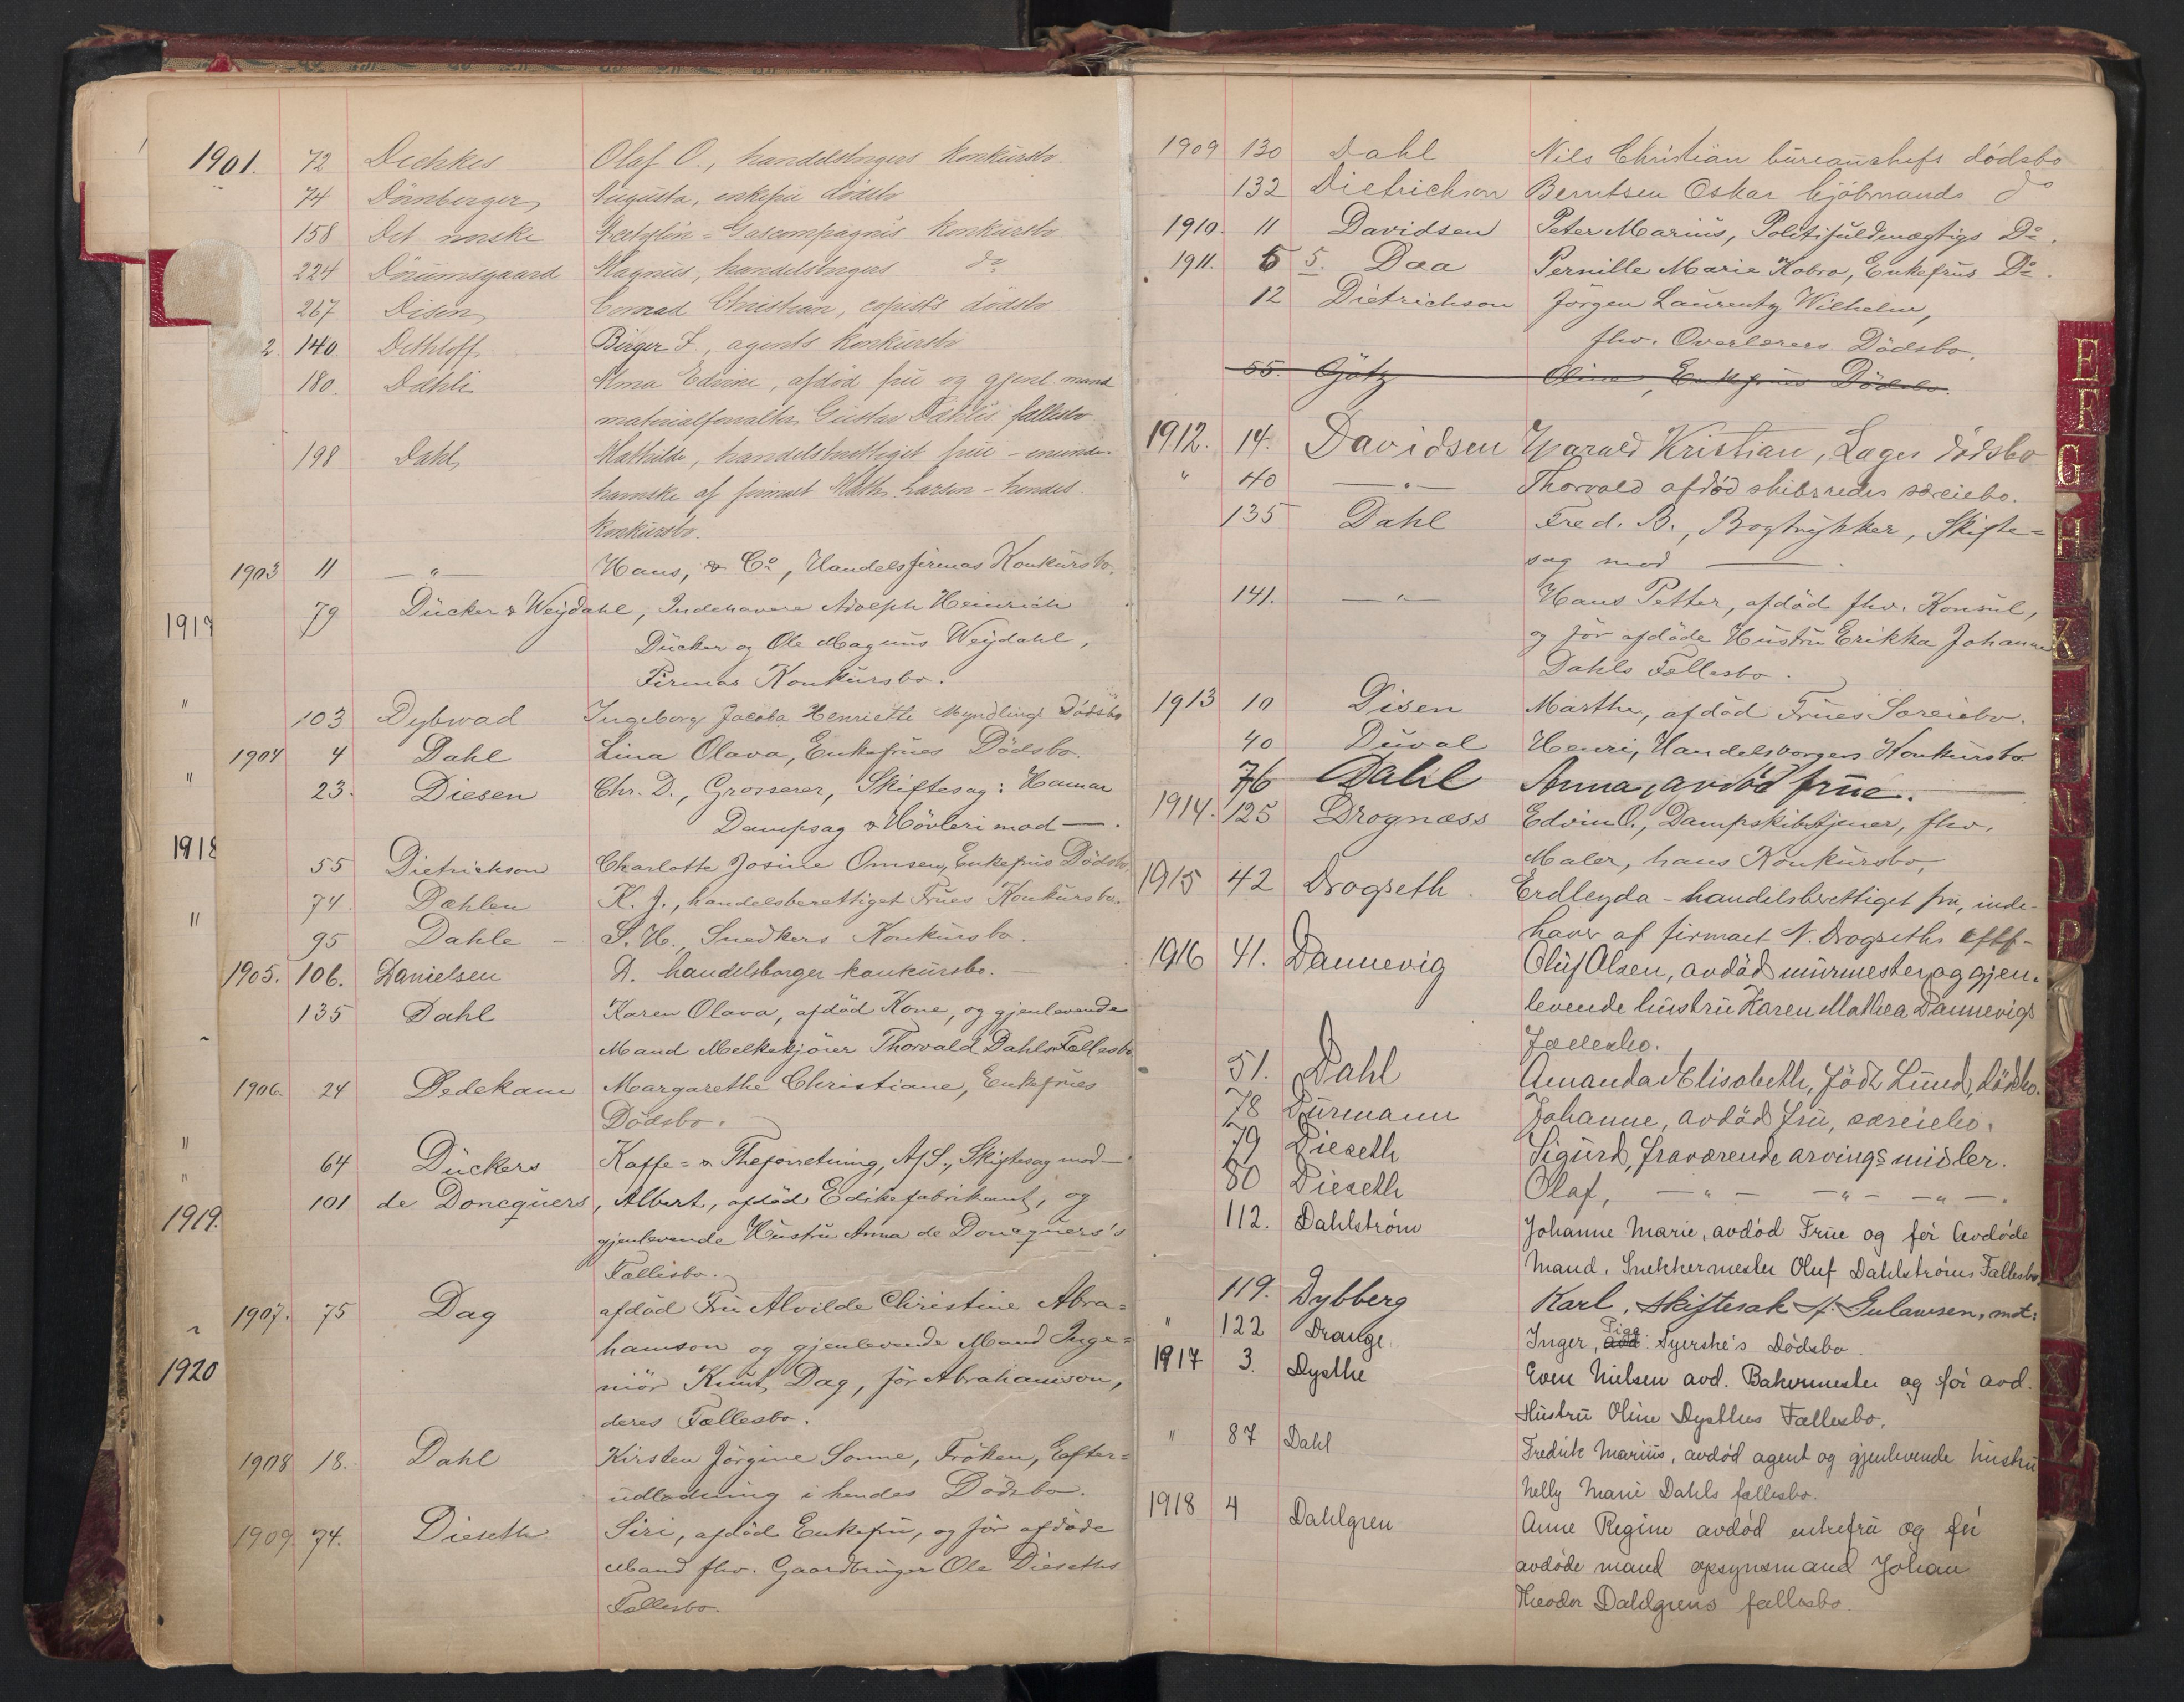 1901. 72 Dechkes Olaf O., handelsbrgers konkursbo
" 74 Dörnberger Augusta, enkefru dödsbo
158 Det norske Acetylin=Gascompagnis konkursbo.
224 Dörumsgaard Magnus, handelsbrgers do
267 Disen Conrad Christian, copists dödsbo
2. 140 Dethloff Birger F., agents konkursbo
180. Dæhli Alma Edvine, afdød frue og gjenl. mand
materialforvalter Gustav Dæhlis fællesbo
198 Dahl Mathilde, handelsberettiget frue – eneinde-
haverske af firmaet Math. Larsen – hendes
konkursbo.
1903 11 —"— Hans, & Co, Handelsfirmas Konkursbo.
79 Dücker & Weydahl, Indehavere Adolph Heinrich
Dücker og Ole Magnus Weydahl,
Firmas Konkursbo.
103 Dybwad Ingeborg Jacoba Henriette Myndlings Dödsbo
1904 4 Dahl Lina Olava, Enkefrues Dödsbo.
23. Diesen Chr. D., Grosserer, Skiftesag: Hamar
Dampsag & Hövleri mod — .
55 Dietrichson Charlotte Josine Omsen, Enkefrus Dödsbo.
74. Dæhlen K. J., handelsberettiget Frues Konkursbo.
95 Dahle – S. H., Snedkers Konkursbo.
1905. 106. Danielsen D. handelsborger konkursbo. —
135 Dahl Karen Olava, afdöd Kone, og gjenlevende
Mand Melkekjörer Thorvald Dahls Fællesbo
1906. 24 Dedekam Margarethe Christiane, Enkefrues
Dödsbo.
64 Dückers Kaffe= & Theforretning, A/S., Skiftesag mod —
101 de Doncquers, Albert, afdöd Edikefabrikant, og
gjenlevende Hustru Anna de Doncquers's
Fællesbo.
1907. 75 Dag afdöd Fru Alvilde Christine Abra=
hamson og gjenlevende Mand Inge=
niör Knut Dag, för Abrahamson,
deres Fællesbo.
1908 18. Dahl Kirsten Jörgine Sonne, Fröken, Efter=
udlodning i hendes Dödsbo.
1909. 74. Dieseth Siri, afdöd Enkefru, og för afdöde
Mand fhv. Gaardbruger Ole Dieseths
Fællesbo.
1917
"
"
1918
"
"
"
1919.
"
1920
1909 130 Dahl Nils Christian bureauchefs dödsbo
132 Dietrichson Berntsen Oskar kjöbmands do
1910. 11 Davidsen Peter Marius, Politifuldmægtigs Do.
1911. 5 5. Daa Pernille Marie Kobro, Enkefrus Do.
12 Dietrichson Jörgen Laurentz Wilhelm,
fhv. Overlærers Dödsbo.
55. Götz Oline, Enkefrues Dödsbo.
1912. 14. Davidsen Harald Kristian, Læges dödsbo
" 40 —"— Thorvald afdöd skibsreder særeiebo.
135 Dahl Fred. B., Bogtrykker, Skifte=
sag mod — .
141. —"— Hans Petter, afdöd fhv. Konsul,
og för afdöde Hustru Erikka Johanne
Dahls Fællesbo.
1913 10 Disen Marthe, afdöd Frues Særeiebo.
40 Duval Henri, Handelsborgers Konkursbo
76 Dahl Anna, avdöd frue.
1914. 125 Drognæss Edvin O., Dampskibstjener, fhv.
Maler, hans Konkursbo,
1915 42 Drogseth Erdleyda – handelsberettiget fru, inde-
haver af firmaet N. Drogseths eftf-
1916 41. Dannevig Oluf Olsen, avdöd murmester og gjen-
levende hustru Karen Mathea Dannevigs
Fællesbo.
51. Dahl Amanda Elisabeth, född Lund, dödsbo.
78 Durmann Johanne, avdöd fru, særeiebo.
79 Dieseth Sigurd, fraværende arvings midler.
80 Dieseth Olaf, —"— —"— —"—.
112. Dahlstrøm Johanne Marie, avdød Frue og før Avdøde
Mand, Snekkermester Oluf Dahlstrøms Fællesbo.
119. Dybberg Karl, Skiftesak f. Gulawsen, mot:
" 122 Drange Inger, avd. Pige Syerske's Dødsbo.
1917 3. Dysthe Even Nielsen avd. Bakermester og før avd.
Hustru Oline Dysthes Fællesbo.
" 87 Dahl Fredrik Marius, avdød agent og gjenlevende hustru
Nelly Marie Dahls fællesbo.
1918 4 Dahlgren Anne Regine avdød enkefru og før
avdøde mand opsynsmand Johan
Theodor Dahlgrens fællesbo.
E
F
G
H
K
L
N
O
P